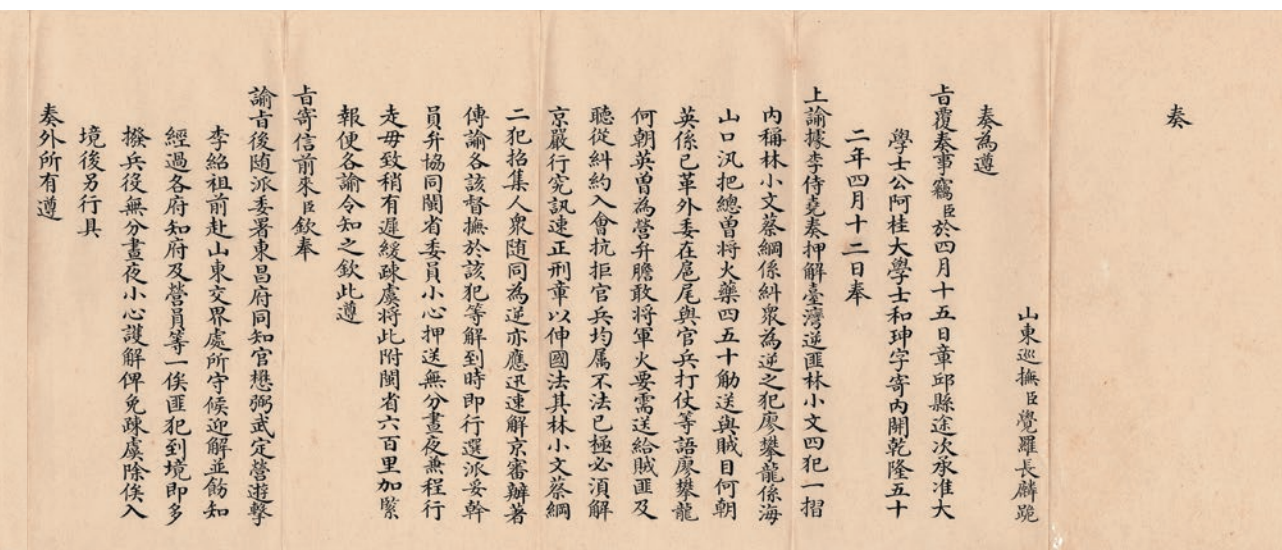 奏
山東巡撫臣覺羅長麟跪
奏為遵
旨覆奏事竊臣於四月十五日章邱縣途次承准大
學士公阿桂大學士和珅字寄內開乾隆五十
二年四月十二日奉
上諭據李侍堯奏押解臺灣逆匪林小文四犯一摺
內稱林小文蔡綱係糾衆為逆之犯廖攀龍係海
山口汛把總曾將火藥四五十觔送與賊目何朝
英係已革外委在扈尾與官兵打仗等語廖攀龍
何朝英曾為營弁膽敢將軍火要需送給賊匪及
聽從糾約入會抗拒官兵均属不法已極必湏解
京嚴行究訊速正刑章以伸國法其林小文蔡綱
二犯招集人衆随同為逆亦應迅速解京審辦著
傳諭各該督撫於該犯等解到時即行選派妥幹
員弁協同閩省委員小心押送無分晝夜兼程行
走毋致稍有遲緩疎虞將此附閩省六百里加緊
報便各諭令知之欽此遵
旨寄信前來臣欽奉
諭旨後随派委署東昌府同知官懋弼武定營遊擊
李紹祖前赴山東交界處所守候迎解並飭知
經過各府知府及營員等一俟匪犯到境即多
撥兵役無分晝夜小心護解俾免疎虞除俟入
境後另行具
奏外所有遵